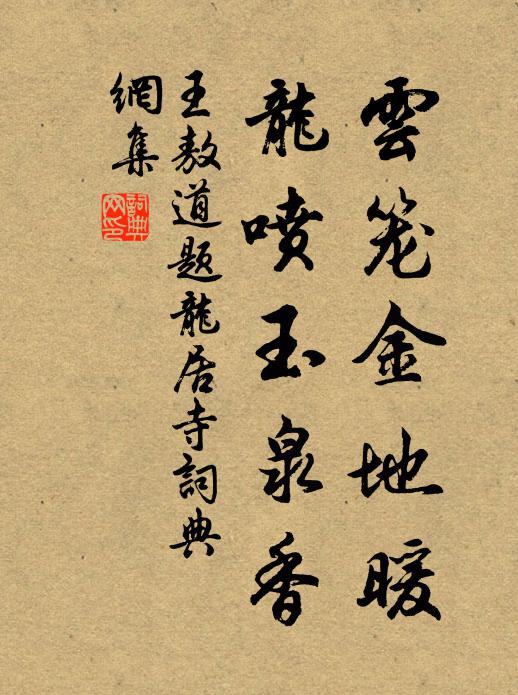 雲笼金地暖
龍喷玉泉香
王敖道题龍居寺詞典
網集
詞典
网印